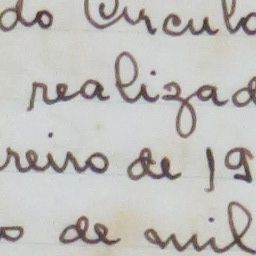 do Circulo
realizad
reiro de 19
o de mil